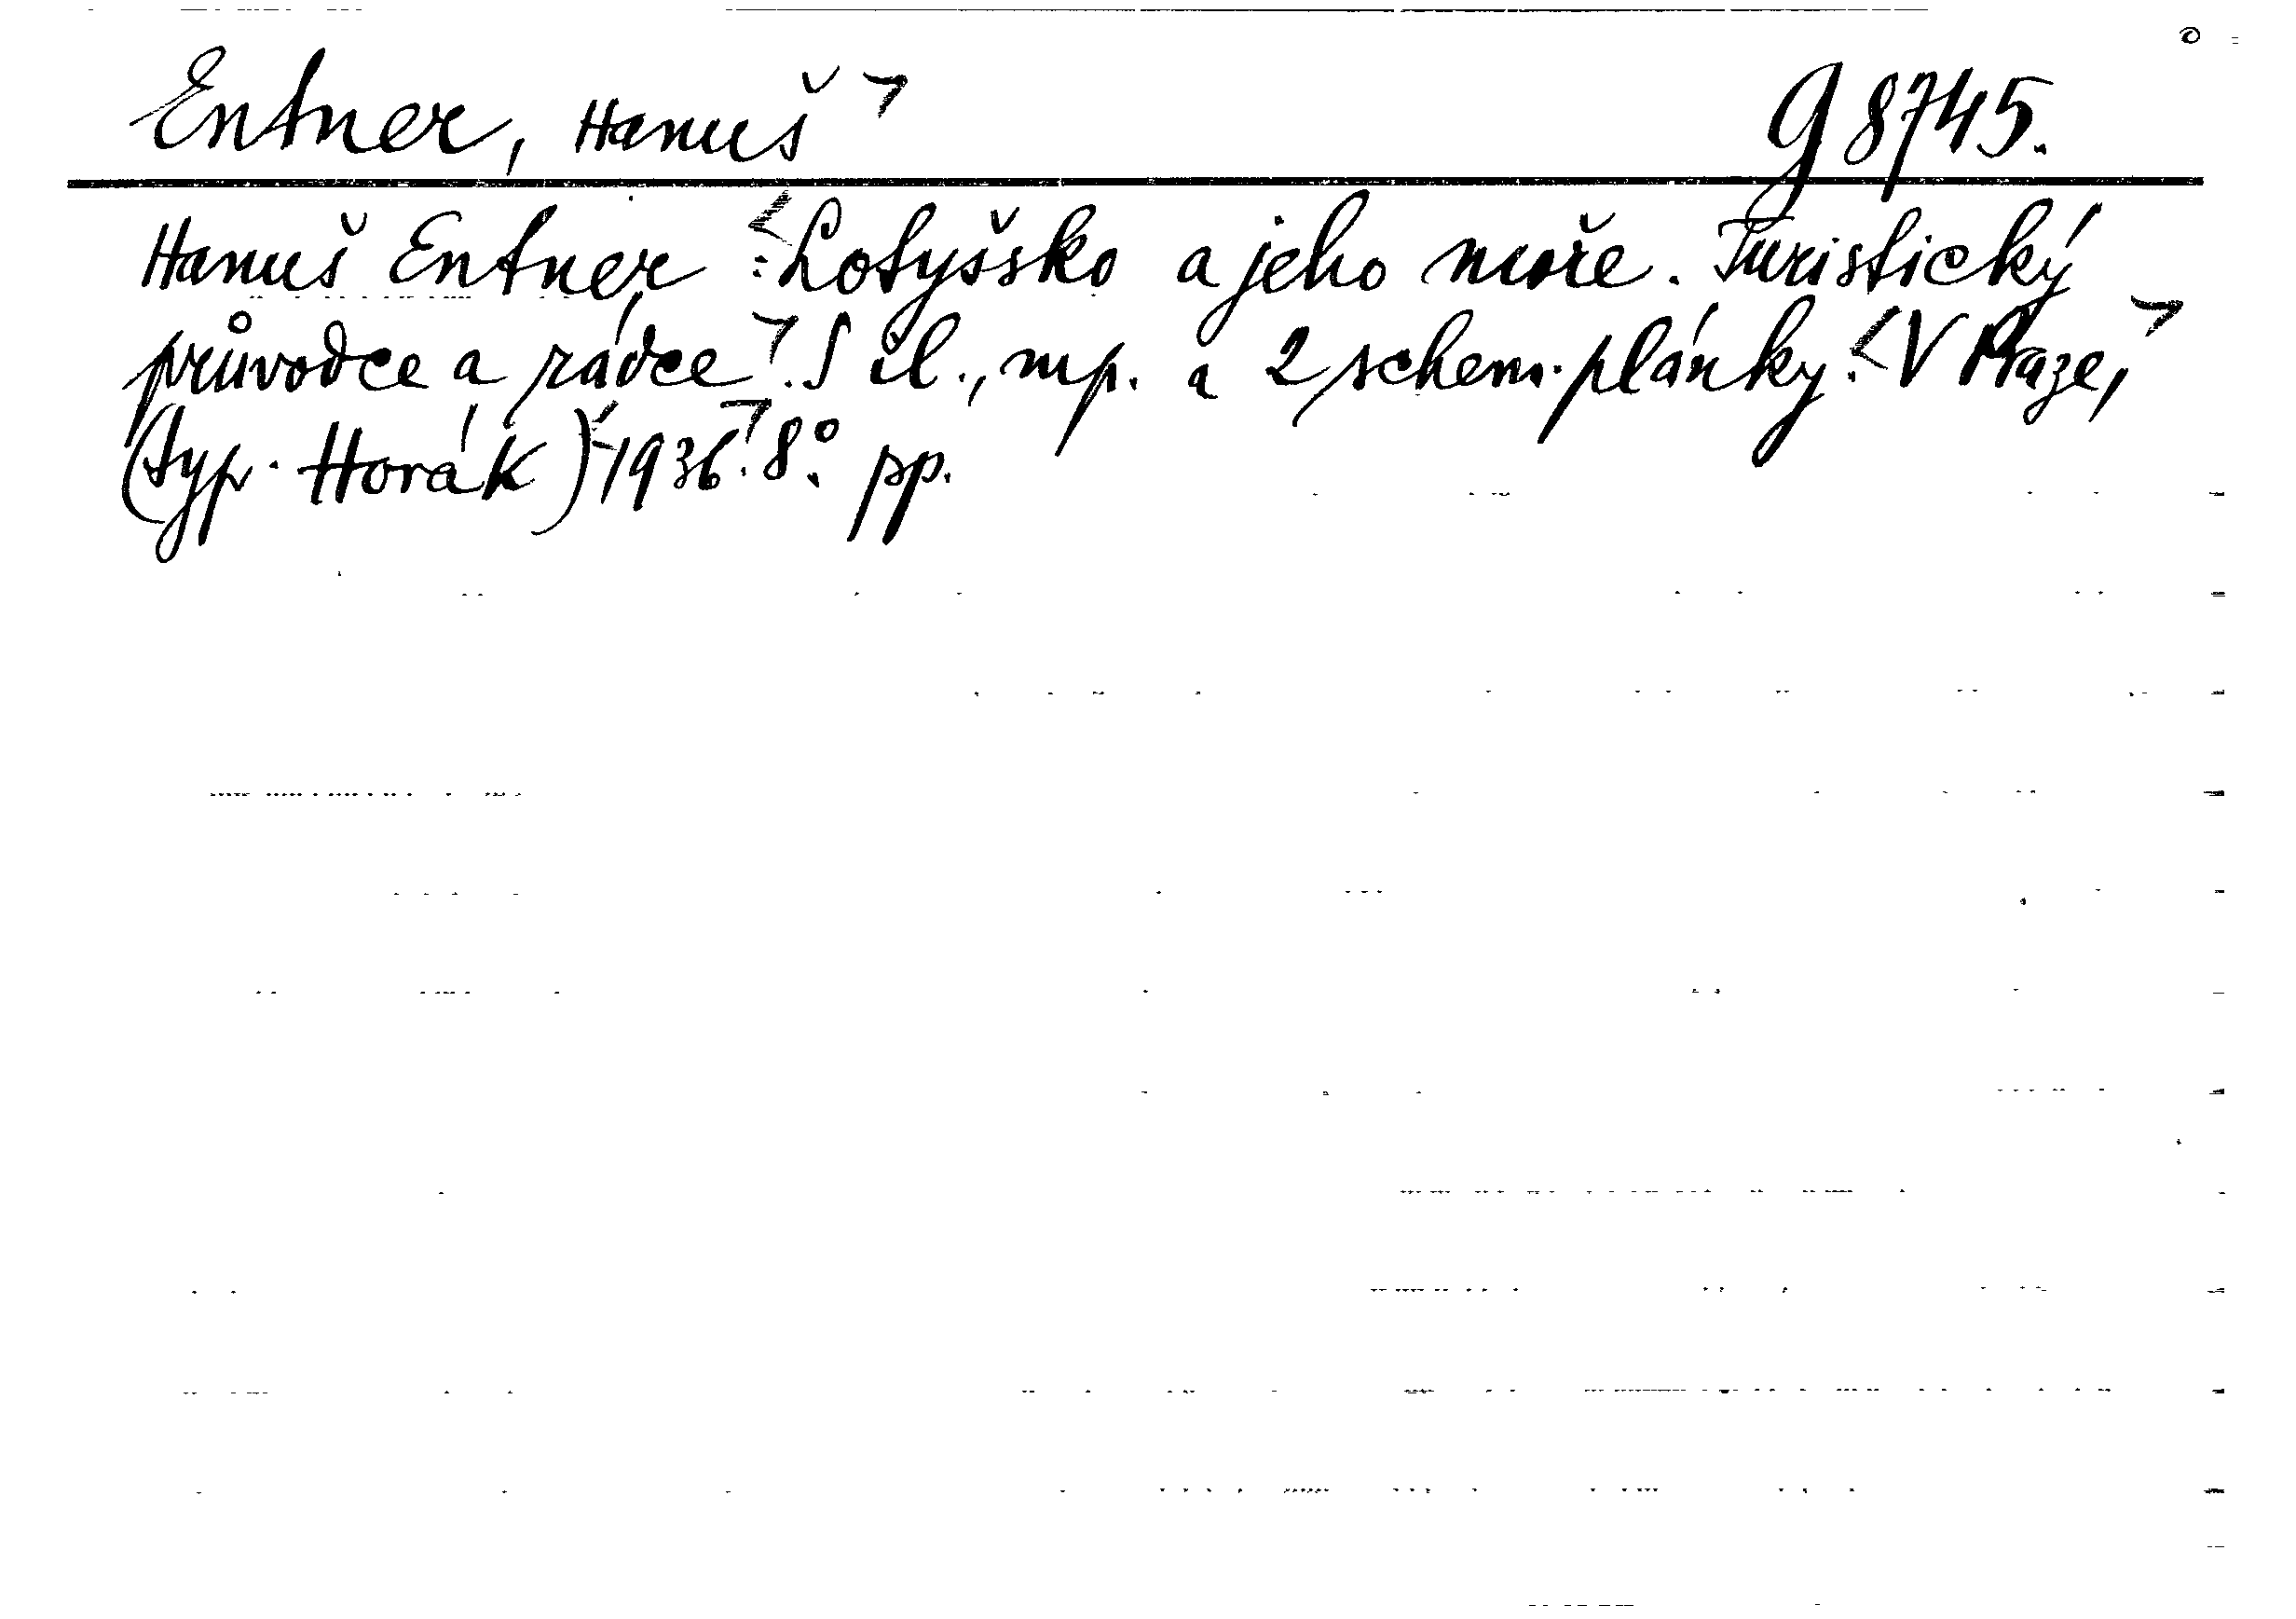 Entner, Hanuš g 8745.
Hanuš Entner : Lotyšsko a jeho moře. Turistický
průvodce a rádce. S il., mp. a 2 schem. plánky. V Praze,
(typ. Horák) 1936. 8°. pp.